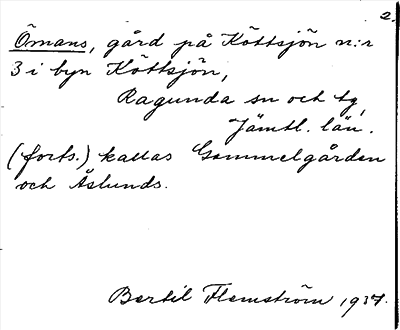 2.
Ömans, gård på Köttsjön n:r
3 i byn Köttsjön,
Ragunda sn och tg,
Jämtl. län.
(forts.) kallas Gammelgården
och Åslunds.
Bertil Flemström 1937.